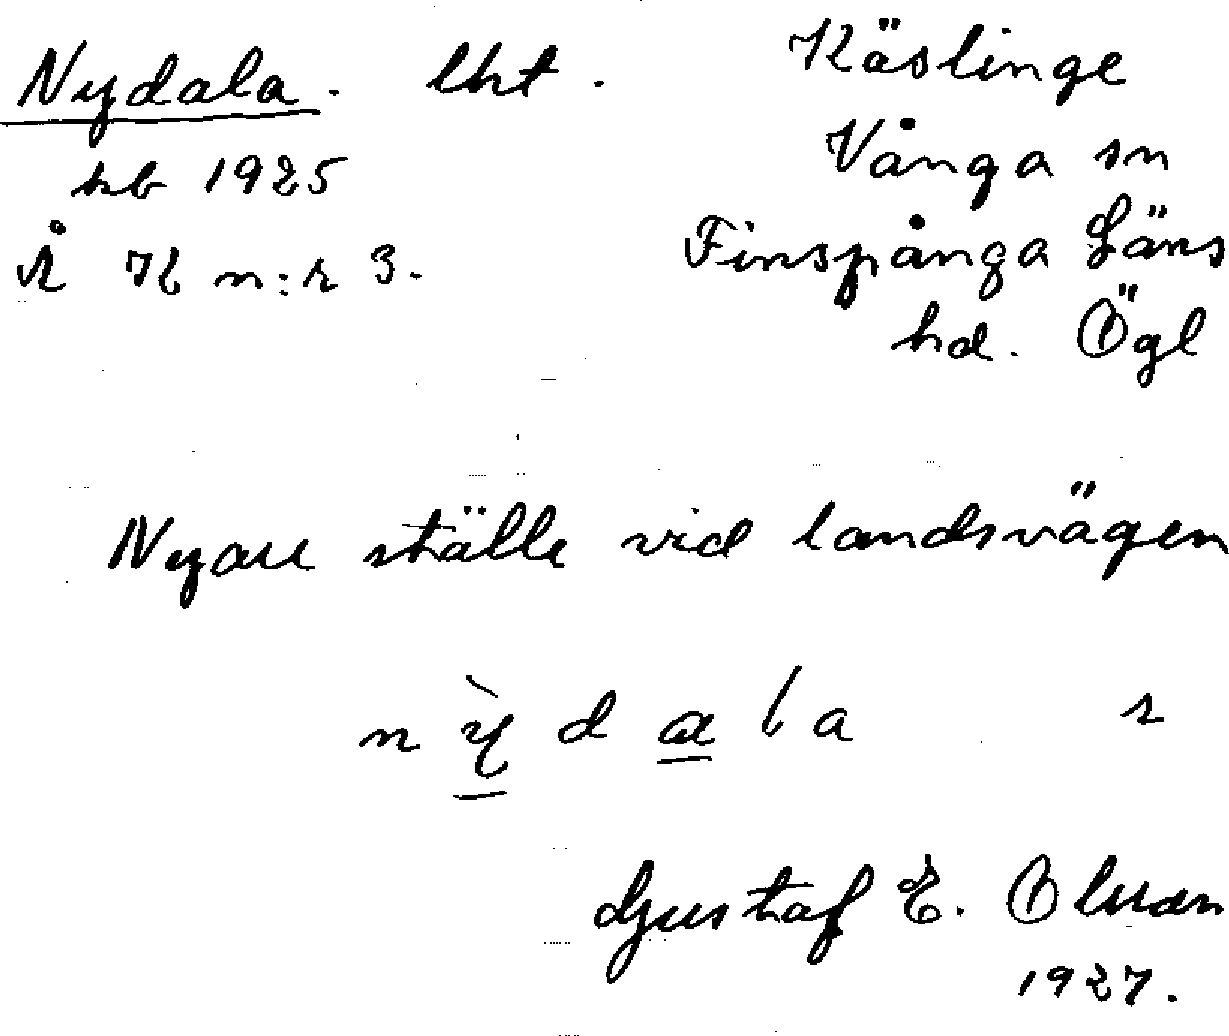 Nydala. lht. Käslinge
Vånga sn
kb 1925
Finspånga Läns
Å K n:r 3.
hd. Ögl
Nyare ställe vid landsvägen
n ỳ d a l a
Gustaf E. Olsson
1927.